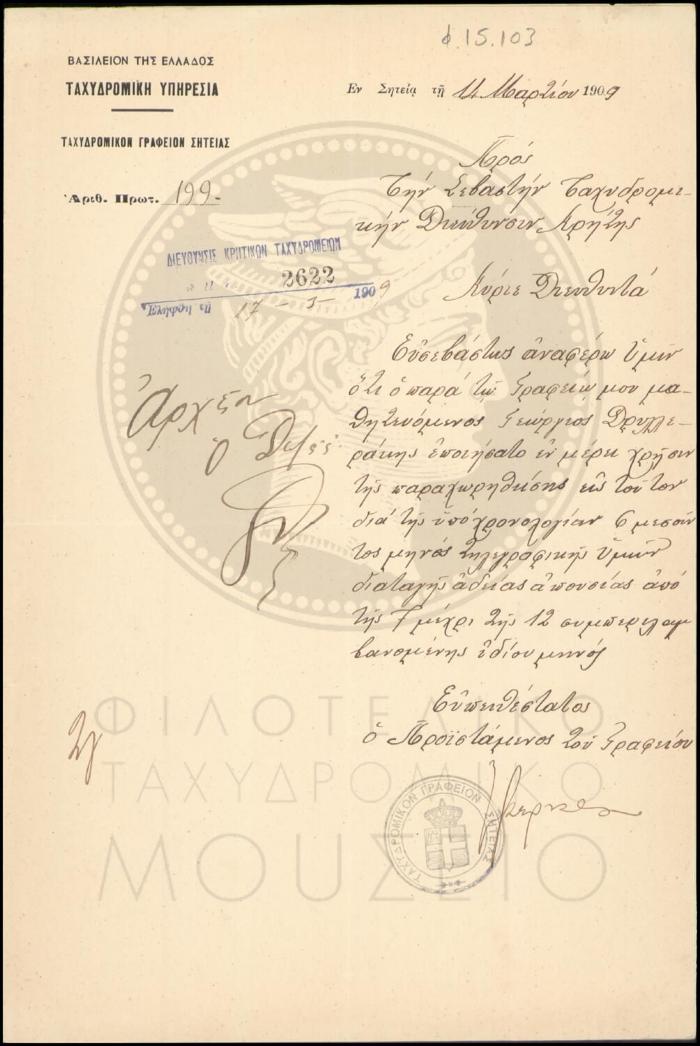 φ.15.103
ΒΑΣΙΛΕΙΟΝ ΤΗΣ ΕΛΛΑΔΟΣ
ΤΑΧΥΔΡΟΜΙΚΗ ΥΠΗΡΕΣΙΑ
ΤΑΧΥΔΡΟΜΙΚΟΝ ΓΡΑΦΕΙΟΝ ΣΗΤΕΙΑΣ
Ἀριθ. Πρωτ. 199-
Ἐν Σητείᾳ τῇ 14 Μαρτίου 1909
Πρός
Τὴν Σεβαστὴν Ταχυδρομι-
κὴν Διεύθυνσιν Κρήτης
ΔΙΕΥΘΥΝΣΙΣ ΚΡΗΤΙΚΩΝ ΤΑΧΥΔΡΟΜΕΙΩΝ
2622
Ἐλήφθη τῇ 17 - 3 - 1909
Κύριε Διευθυντά
Εὐσεβάστως ἀναφέρω Ὑμῖν
ὅτι ὁ παρὰ τῷ Γραφείῳ μου μα-
θητευόμενος Γεώργιος
ἐποιήσατο ἐν μέρει χρῆσιν
τῆς παραχωρηθείσης εἰς τοῦτον
διὰ τῆς ὑπὸ χρονολογίαν 6 μεσοῦν
τος μηνός τηλεγραφικῆς Ὑμῶν
διαταγῆς ἀδείας ἀπουσίας ἀπό
τῆς 7 μέχρι τῆς 12 συμπεριλαμ
βανομένης ἰδίου μηνός
Εὐπειθέστατος
ὁ Προϊστάμενος τοῦ Γραφείου
Ἀρχεῖον
ὁ
ΤΑΧΥΔΡΟΜΙΚΟΝ ΓΡΑΦΕΙΟΝ ΣΗΤΕΙΑΣ
ΦΙΛΟΤΕΛΙΚΟ
ΤΑΧΥΔΡΟΜΙΚΟ
ΜΟΥΣΕΙΟ